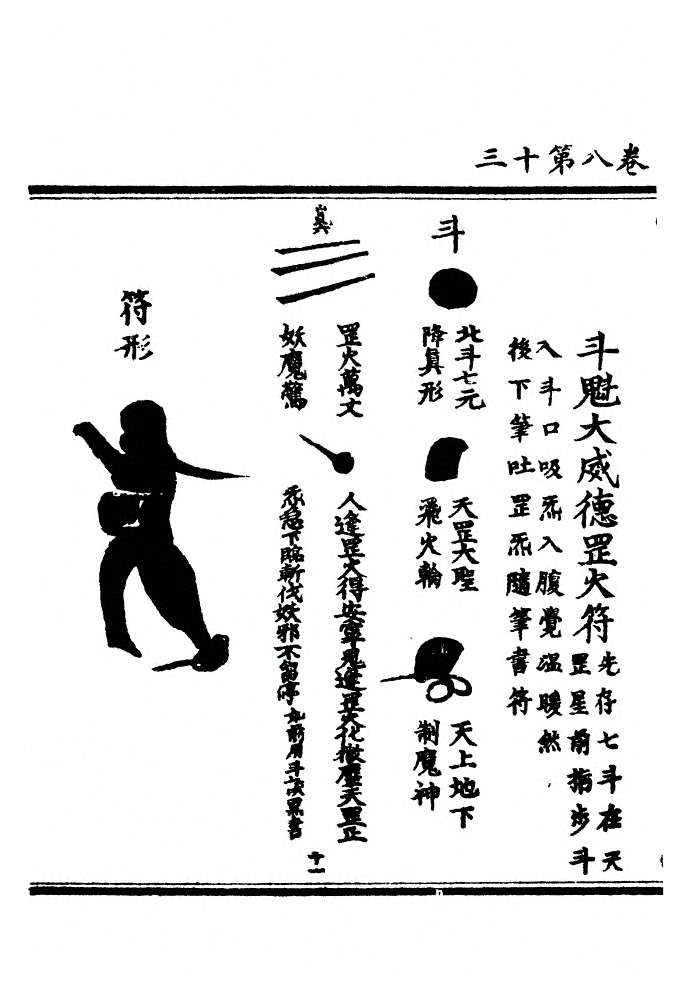 卷八第十三
斗魁大威德罡火符
先存七斗在天
罡星前指步斗
入斗口吸炁入腹覺温暖然
後下筆吐罡炁隨筆書符
斗
北斗七元
降真形
天罡大聖
飛火輪
天上地下
制魔神
真
罡火萬丈
妖魔驚
人逢罡火得安寧鬼逢罡火化微塵天罡正
炁急下臨斬伐妖邪不留停
如前用斗訣罡書
十一
符形